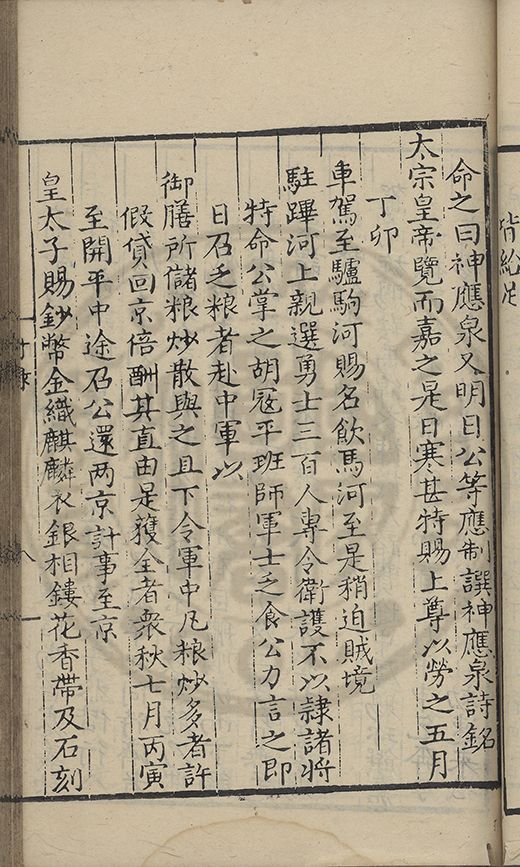 命之曰神應泉又明日公等應制譔神應泉詩銘
太宗皇帝覽而嘉之是日寒甚特賜上尊以勞之五月
丁卯
車駕至驢駒河賜名飲馬河至是稍迫賊境
駐蹕河上親選勇士三百人專令衛護不以隸諸將
特命公掌之胡冦平班師軍士乏食公力言之即
日召乏粮者赴中軍以
御膳所儲粮炒散與之且下令軍中凡粮炒多者許
假貸回京倍酬其直由是獲全者衆秋七月丙寅
至開平中途召公還两京計事至京
皇太子賜鈔幣金織麒麟衣銀相鏤花香帶及石刻